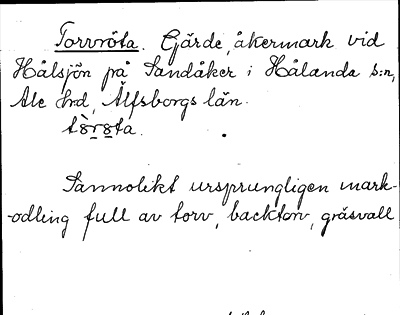 Torvröta. Gärde, åkermark vid
Hålsjön på Sandåker i Hålanda s:n,
Ale hrd, Älfsborgs län.
tòrøta.
Sannolikt ursprungligen mark-
odling full av torv, backtorv, gräsvall